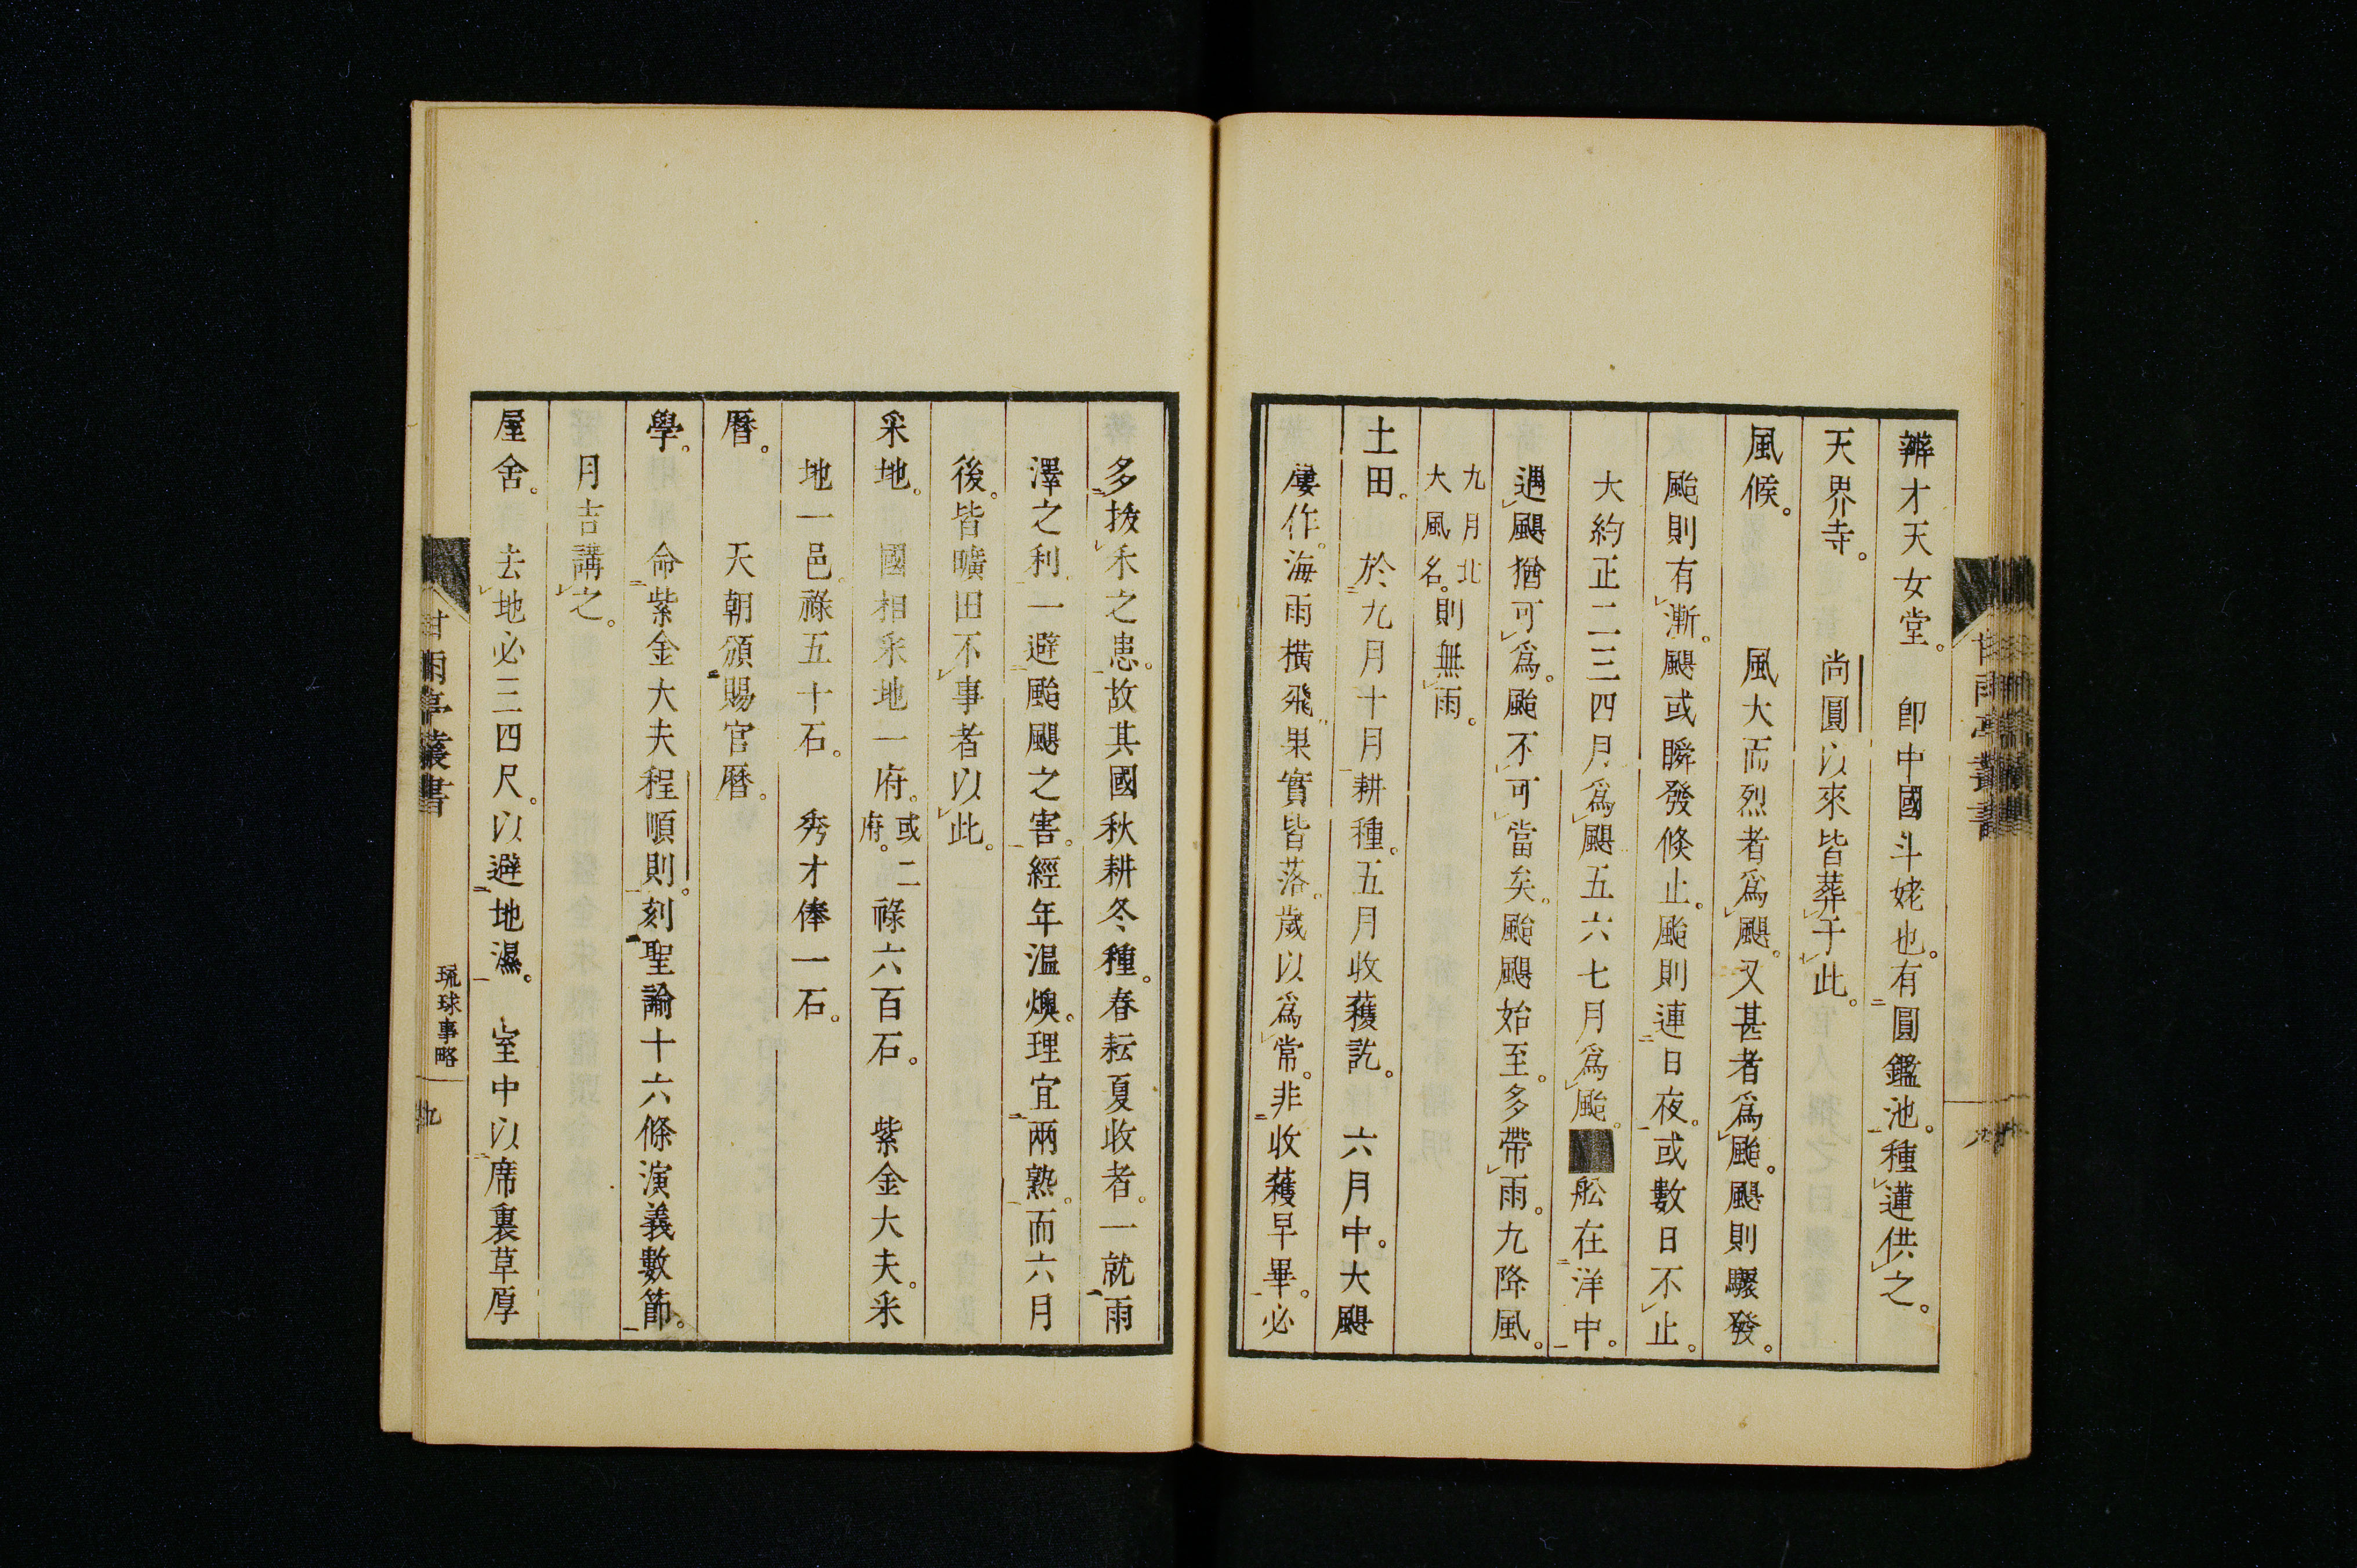 辨才天女堂。 卽中國斗姥也。有圓鑑池。種蓮供之。
天界寺。 尚圓以來皆葬于此。
風候。 風大而烈者爲颶。又甚者爲颱。颶則驟發。
颱則有漸。颶或瞬發倏止。颱則連日夜。或數日不止。
大約正二三四月爲颶五六七月爲颱。■舩在洋中。
遇颶猶可爲。颱不可當矣。颱颶始至。多帶雨。九降風。
九月北大風名。則無雨。
土田。 於九月十月耕種。五月收穫訖。 六月中。大颶
屢作。海雨橫飛。果實皆落。歲以爲常。非收穫早畢。必
多拔禾之患。故其國秋耕冬種。春耘夏收者。一就雨
澤之利。一避颱颶之害。經年溫燠。理宜兩熟。而六月
後。皆曠田不事者以此。
采地。 國相采地一府。或二府。祿六百石。 紫金大夫。采
地一邑。祿五十石。 秀才俸一石。
曆。 天朝頒賜官曆。
學。 命紫金大夫程順則。刻聖諭十六條演義數節。
月吉講之。
屋舍。 去地必三四尺。以避地濕。 室中以席裏草厚
甘雨亭叢書
琉球事略
九
甘雨亭叢書